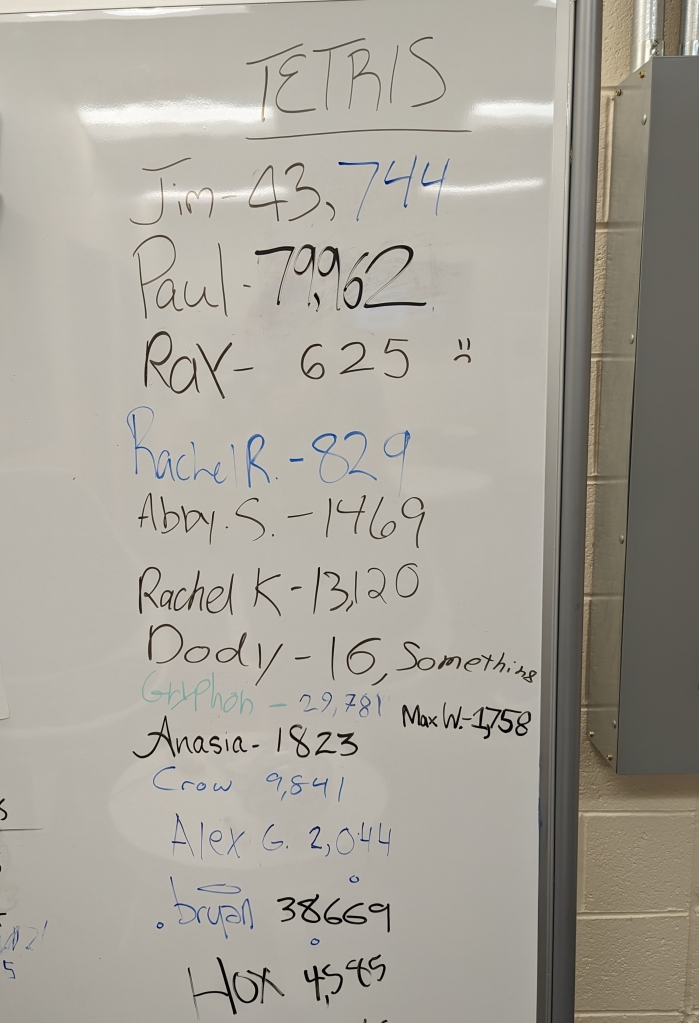 TETRIS
Jim - 43,744
Paul - 79,962
Ray - 625 :(
Rachel R. - 829
Abby. S. - 1469
Rachel K - 13,120
Dody - 16, Something
Gryphon - 29,781
Max W. - 1,758
Anasia - 1823
Crow 9,841
Alex G. 2,044
bryan 38669
Hox 4,585